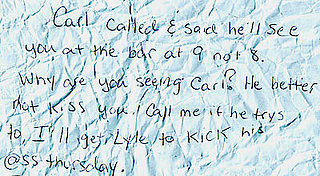 Carl called & said he'll see
you at the bar at 9 not 8.
Why are you seeing Carl? He better
not kiss you. Call me if he trys
to, I'll get Lyle to KICK his
@SS thursday.